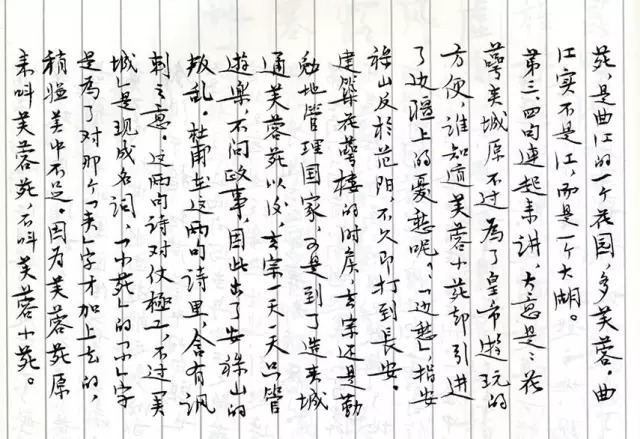 苑，是曲江的一个花园，多芙蓉。曲
江实不是江，而是一个大湖。
第三、四句连起来讲，大意是：花
萼夹城原不过为了皇帝游玩的
方便，谁知道芙蓉小苑却引进
了边疆上的忧愁呢？「边愁」指安
祿山反於范阳，不久即打到長安。
建築花萼楼的时候，玄宗还是勤
勉地管理国家，可是到了造夹城
通芙蓉苑以后，玄宗一天一天只管
遊樂，不问政事，因此出了安祿山的
叛乱。杜甫在这两句诗里，含有讽
刺之意。这两句诗对仗極工，不过「夹
城」是现成名词，「小苑」的「小」字
是為了对那个「夹」字才加上去的，
稍嫌美中不足。因為芙蓉苑原
来叫芙蓉苑，不叫芙蓉小苑。